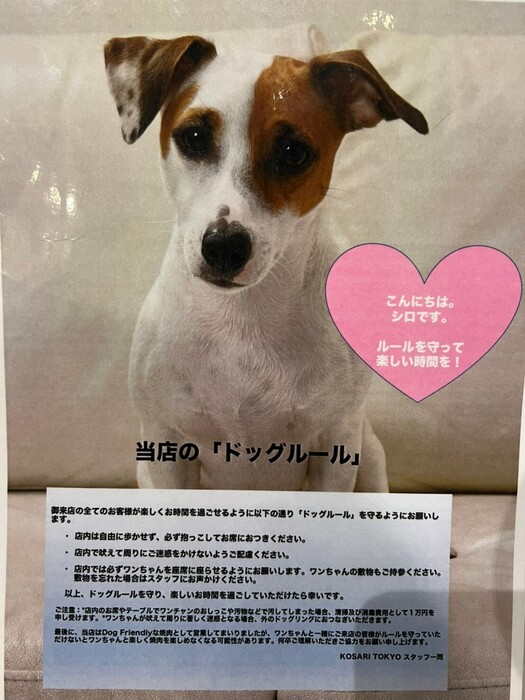 こんにちは。
シロです。
ルールを守って
楽しい時間を！
当店の「ドッグルール」
御来店の全てのお客様が楽しくお時間を過ごせるように以下の通り「ドッグルール」を守るようにお願いし
ます。
・ 店内は自由に歩かせず、必ず抱っこしてお席におつきください。
・ 店内で吠えて周りにご迷惑をかけないようご配慮ください。
・ 店内では必ずワンちゃんを座席に座らせるようにお願いします。ワンちゃんの敷物もご持参ください。
敷物を忘れた場合はスタッフにお声がけください。
以上、ドッグルールを守り、楽しいお時間を過ごしていただけたら幸いです。
ご注意：*店内のお席やテーブルでワンチャンのおしっこや汚物などで汚してしまった場合、清掃及び消毒費用として１万円を
申し受けます。*ワンちゃんが吠えて周りに著しく迷惑となる場合、外のドッグリングにおつなぎいただきます。
最後に、当店はDog Friendlyな焼肉として営業してまいりましたが、ワンちゃんと一緒にご来店の皆様がルールを守っていた
だけないとワンちゃんと楽しく焼肉を楽しめなくなる可能性があります。何卒ご理解いただきご協力をお願い申し上げます。
KOSARI TOKYO スタッフ一同